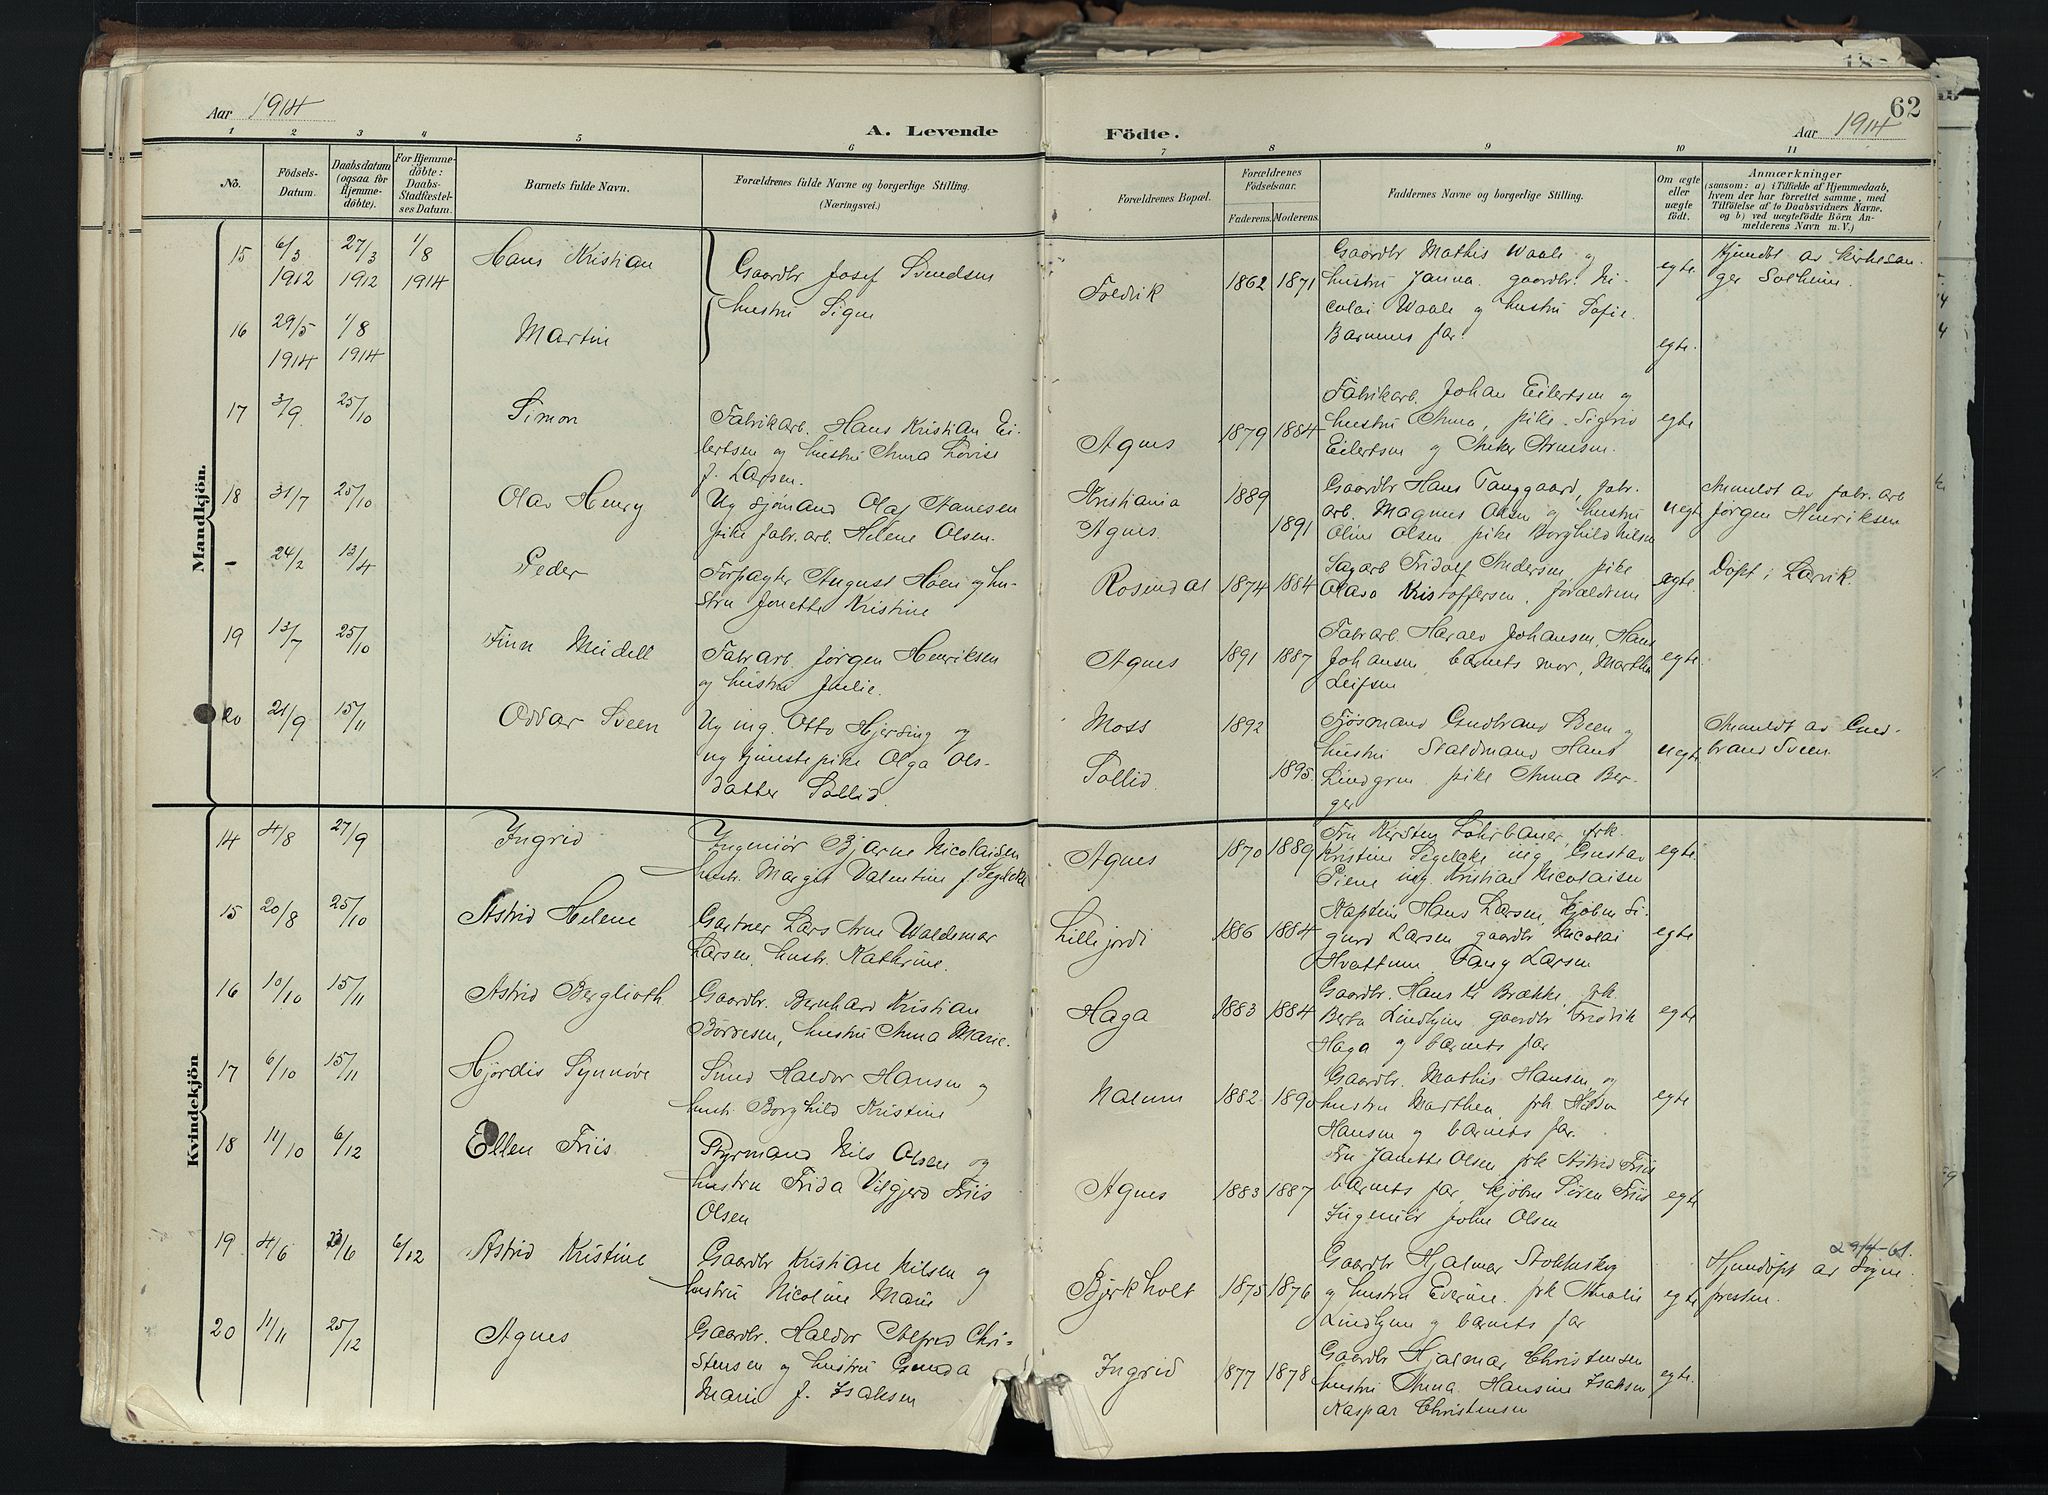 Aar 1914
A. Levende
Födte.
62
Aar 1914
1 2 3 4 5 6 7 8 9 10 11
No.
Födsels-Datum.
Daabsdatum (ogsaa for Hjemmedöbte).
For Hjemmedöbte: Daabs-Stadfæstelses Datum.
Barnets fulde Navn.
Forældrenes fulde Navne og borgerlige Stilling.
(Næringsvei.)
Forældrenes Bopæl.
Forældrenes Födselsaar.
Faderens. Moderens.
Faddernes Navne og borgerlige Stilling.
Om ægte eller uægte födt.
Anmærkninger
(saasom: a) i Tilfælde af Hjemmedaab, hvem der har forrettet samme, med Tilföielse af to Daabsvidners Navne, og b) ved uægtefödte Börn Anmelderens Navn m. V.)
Mandkjön.
15 6/3 1912 27/3 1912 1/8 1914 Hans Kristian
Gaardbr Josef Svendsen
hustru Signe
Foldvik 1862 1871
Gaardbr Mathis Waale og
hustru Janna. gaardbr. Ni-
colai Waale og hustru Sofie.
Barnets far.
egte
Hjemdöbt av kirkesan-
ger Solheim.
16 29/5 1914 1/8 1914 Martin
egte.
17 3/9 25/10 Simon
Fabrikarb. Hans Kristian Ei-
lertsen og hustru Anna Lovise
f. Larsen.
Agnes 1879 1884
Fabrikarb. Johan Eilertsen og
hustru Anna, pike Sigrid
Eilertsen og Anker Arnesen.
egte
18 31/7 25/10 Olav Henry
Ug sjømand Olaf Hanesen
pike fabr. arb. Helene Olsen.
Kristiania 1889
Agnes. 1891
Gaardbr Hans Tanggaard, fabr.
arb. Magnus Olsen og hustru
Oline Olsen, pike Borghild Nilsen
uegt
Anmeldt av fabr. arb
Jørgen Henriksen
- 24/2 13/4 Peder
Forpagter August Høen og hu-
stru Jonette Kristine
Rosendal 1874 1884
Sagarb Fridolf Andersen, pike
Olava Kristoffersen, forældrene
egte.
Döpt i Larvik.
19 13/7 25/10 Finn Meidell
Fabr arb. Jørgen Henriksen
og hustru Julie.
Agnes 1891 1887
Fabr arb. Harald Johansen, Hans
Johansen barnets mor, Marthin
Leifsen
egte
20 21/9 15/11 Oddvar Sveen
Ug ing. Otto Hjersing og
ug tjenestepike Olga Ols-
datter Sollid.
Moss 1892
Sollid. 1895.
Fjøsmand Gudbrand Sveen og
hustru Staldmand Hans
Lindgren pike Anna Ber-
ger
uegte
Anmeldt av Gud-
brand Sveen
Kvindekjön
14 4/8 27/9 Ingrid
Ingeniör Bjarne Nicolaisen
hustr. Margit Valentine f Segelcke
Agnes 1870 1889
Fru Kirsten Lohrbauer, frk.
Kristine Segelcke ing. Gustav
Piene ing. Kristian Nicolaisen
egte
15 20/8 25/10 Astrid Helene
Gartner Lars Arne Waldemar
Larsen, hustr. Kathrine.
Lillejordi 1886 1884
Kaptein Hans Larsen, kjøbm Si-
gurd Larsen gaardbr Nicolai
Hvattum Larsen
egte
16 10/10 15/11 Astrid Berglioth
Gaardbr. Bernhard Kristian
Børresen, hustru Anna Marie.
Haga 1883 1884
Gaardbr. Hans Kr Brække, frk.
Berta Lindhjem gaardbr Fredrik
Haga og barnets far
egte
17 6/10 15/11 Hjördis Synnöve
Smed Haldor Hansen og
hustr. Borghild Kristine
Nalum 1882 1890
Gaardbr. Mathis Hansen og
hustru Marthea, frk Hilda
Hansen og barnets far.
egte
18 11/10 6/12 Ellen Friis
Styrmand Nils Olsen og
hustru Frida Vilgjerd Friis
Olsen
Agnes 1883 1887
Fru Janette Olsen, frk Astrid Friis
barnets far, kjøbm Søren Friis
Ingeniør John Olsen
egte
19 4/6 23/6 6/12 Astrid Kristine
Gaardbr Kristian Nilsen og
hustru Nicoline Marie
Bjerkholt 1875 1876
Gaardbr Hjalmar Stokkeskog
og hustru Everine. frk Amalie
Lindhjem og barnets far
egte
29/4-61.
Hjemdöpt av Sogne-
presten.
20 11/11 25/12 Agnes
Gaardbr. Haldor Alfred Chri-
stensen og hustru Gunda
Marie f. Isaksen
Ingrid 1877 1878
Gaardbr Hjalmar Christensen
hustru Anna. Hansine Isaksen
Kaspar Christensen
egte.